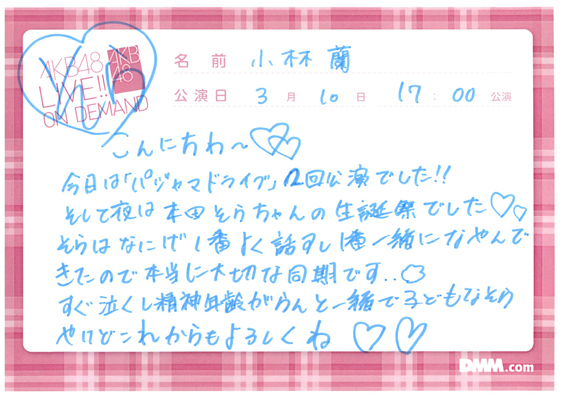 AKB48
LIVE!!
ON DEMAND
AKB
48
名 前 小林 蘭
公演日 3 月 10 日 17 : 00 公演
こんにちわ〜♡♡
今日は「パジャマドライブ」2回公演でした!!
そして夜は本田そらちゃんの生誕祭でした♡♡
そらはなにげ1番よく話すし1番一緒になやんで
きたので本当に大切な同期です..♡
すぐ泣くし精神年齢がらんと一緒で子どもなそら
やけどこれからもよろしくね ♡♡
DMM.com